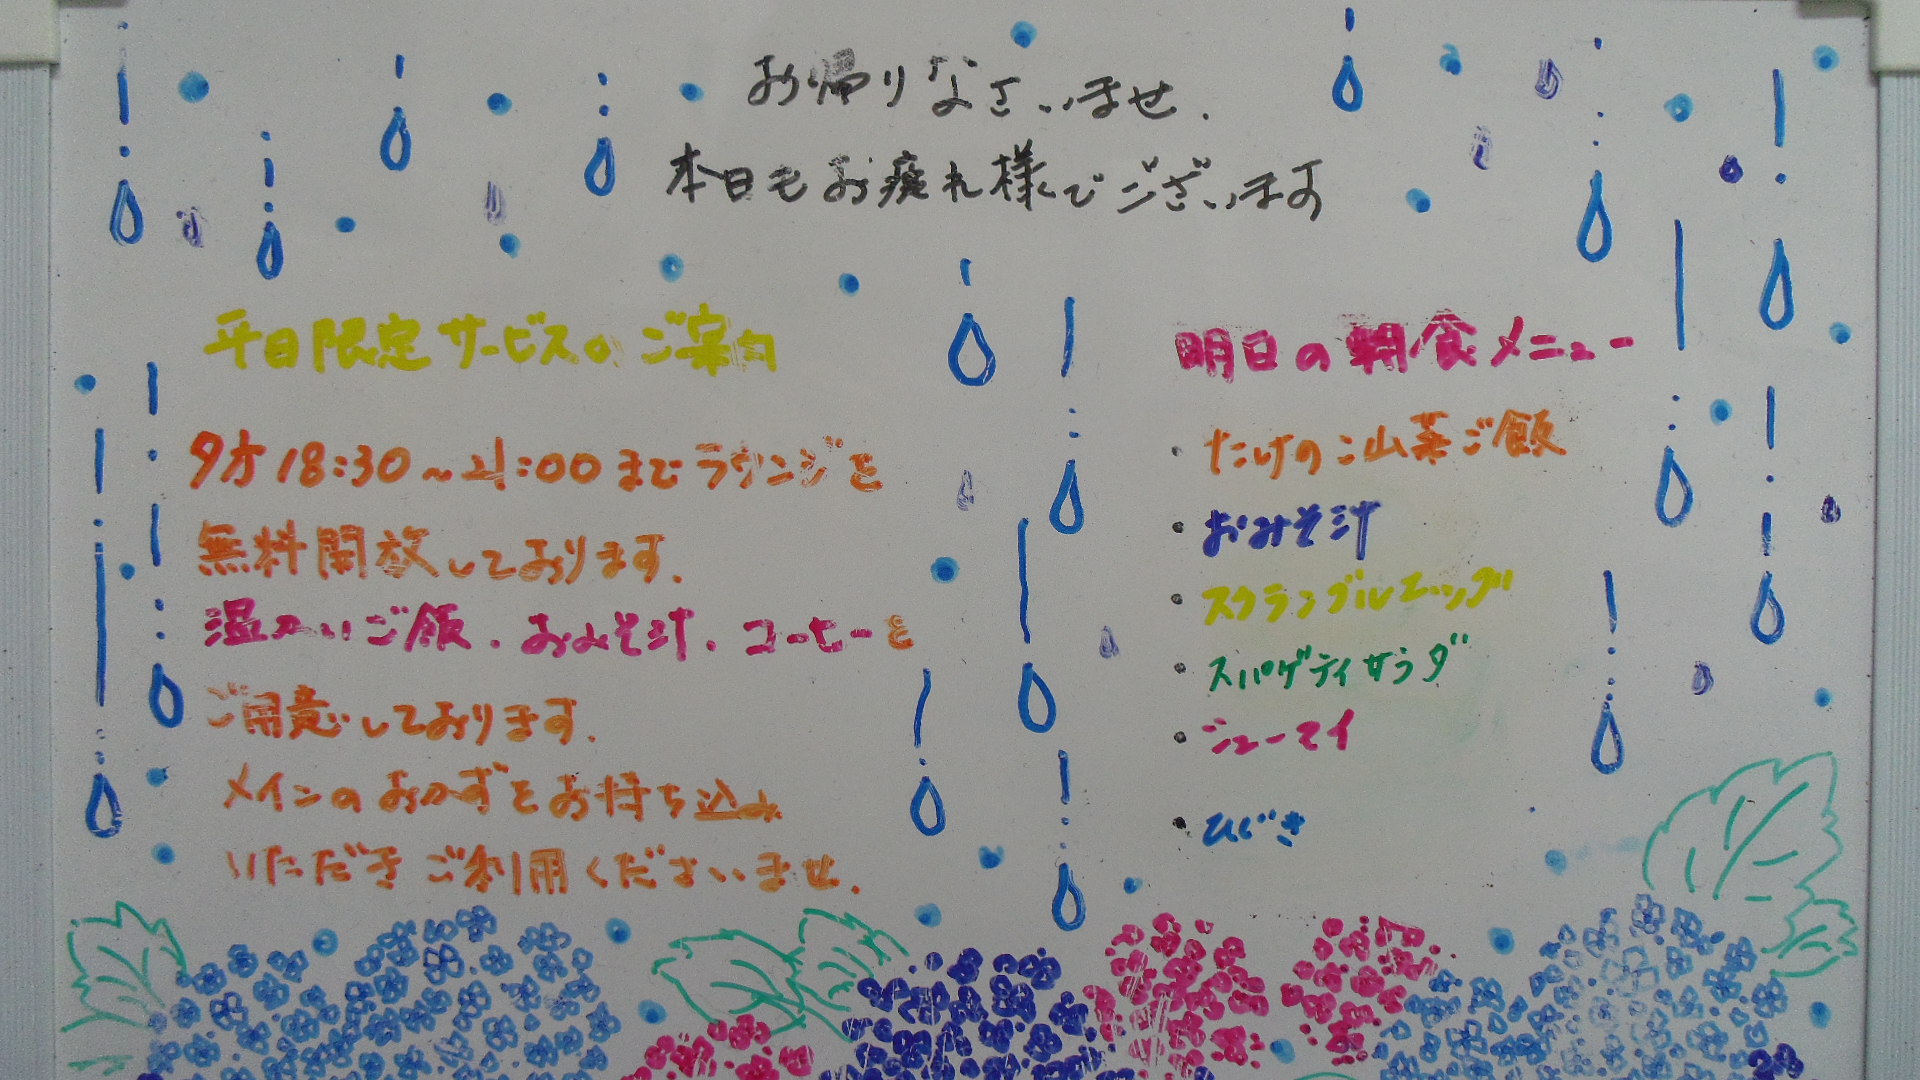 お帰りなさいませ.
本日もお疲れ様でございます
平日限定サービスのご案内
夕方 18:30～21:00までラウンジを
無料開放しております.
温かいご飯．おみそ汁．コーヒーを
ご用意しております.
メインのおかずをお持ち込み
いただきご利用くださいませ.
明日の朝食メニュー
・たけのこ山菜ご飯
・おみそ汁
・スクランブルエッグ
・スパゲティサラダ
・シューマイ
・ひじき